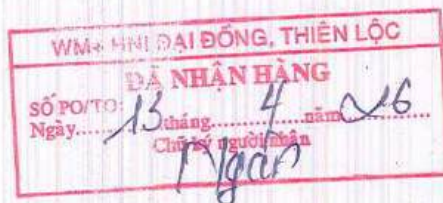 WM+ HNI ĐẠI ĐỒNG, THIÊN LỘC
ĐÃ NHẬN HÀNG
SỐ PO/TO:
Ngày...13...tháng...4...năm 2026...
Chữ ký người nhận
Ngân